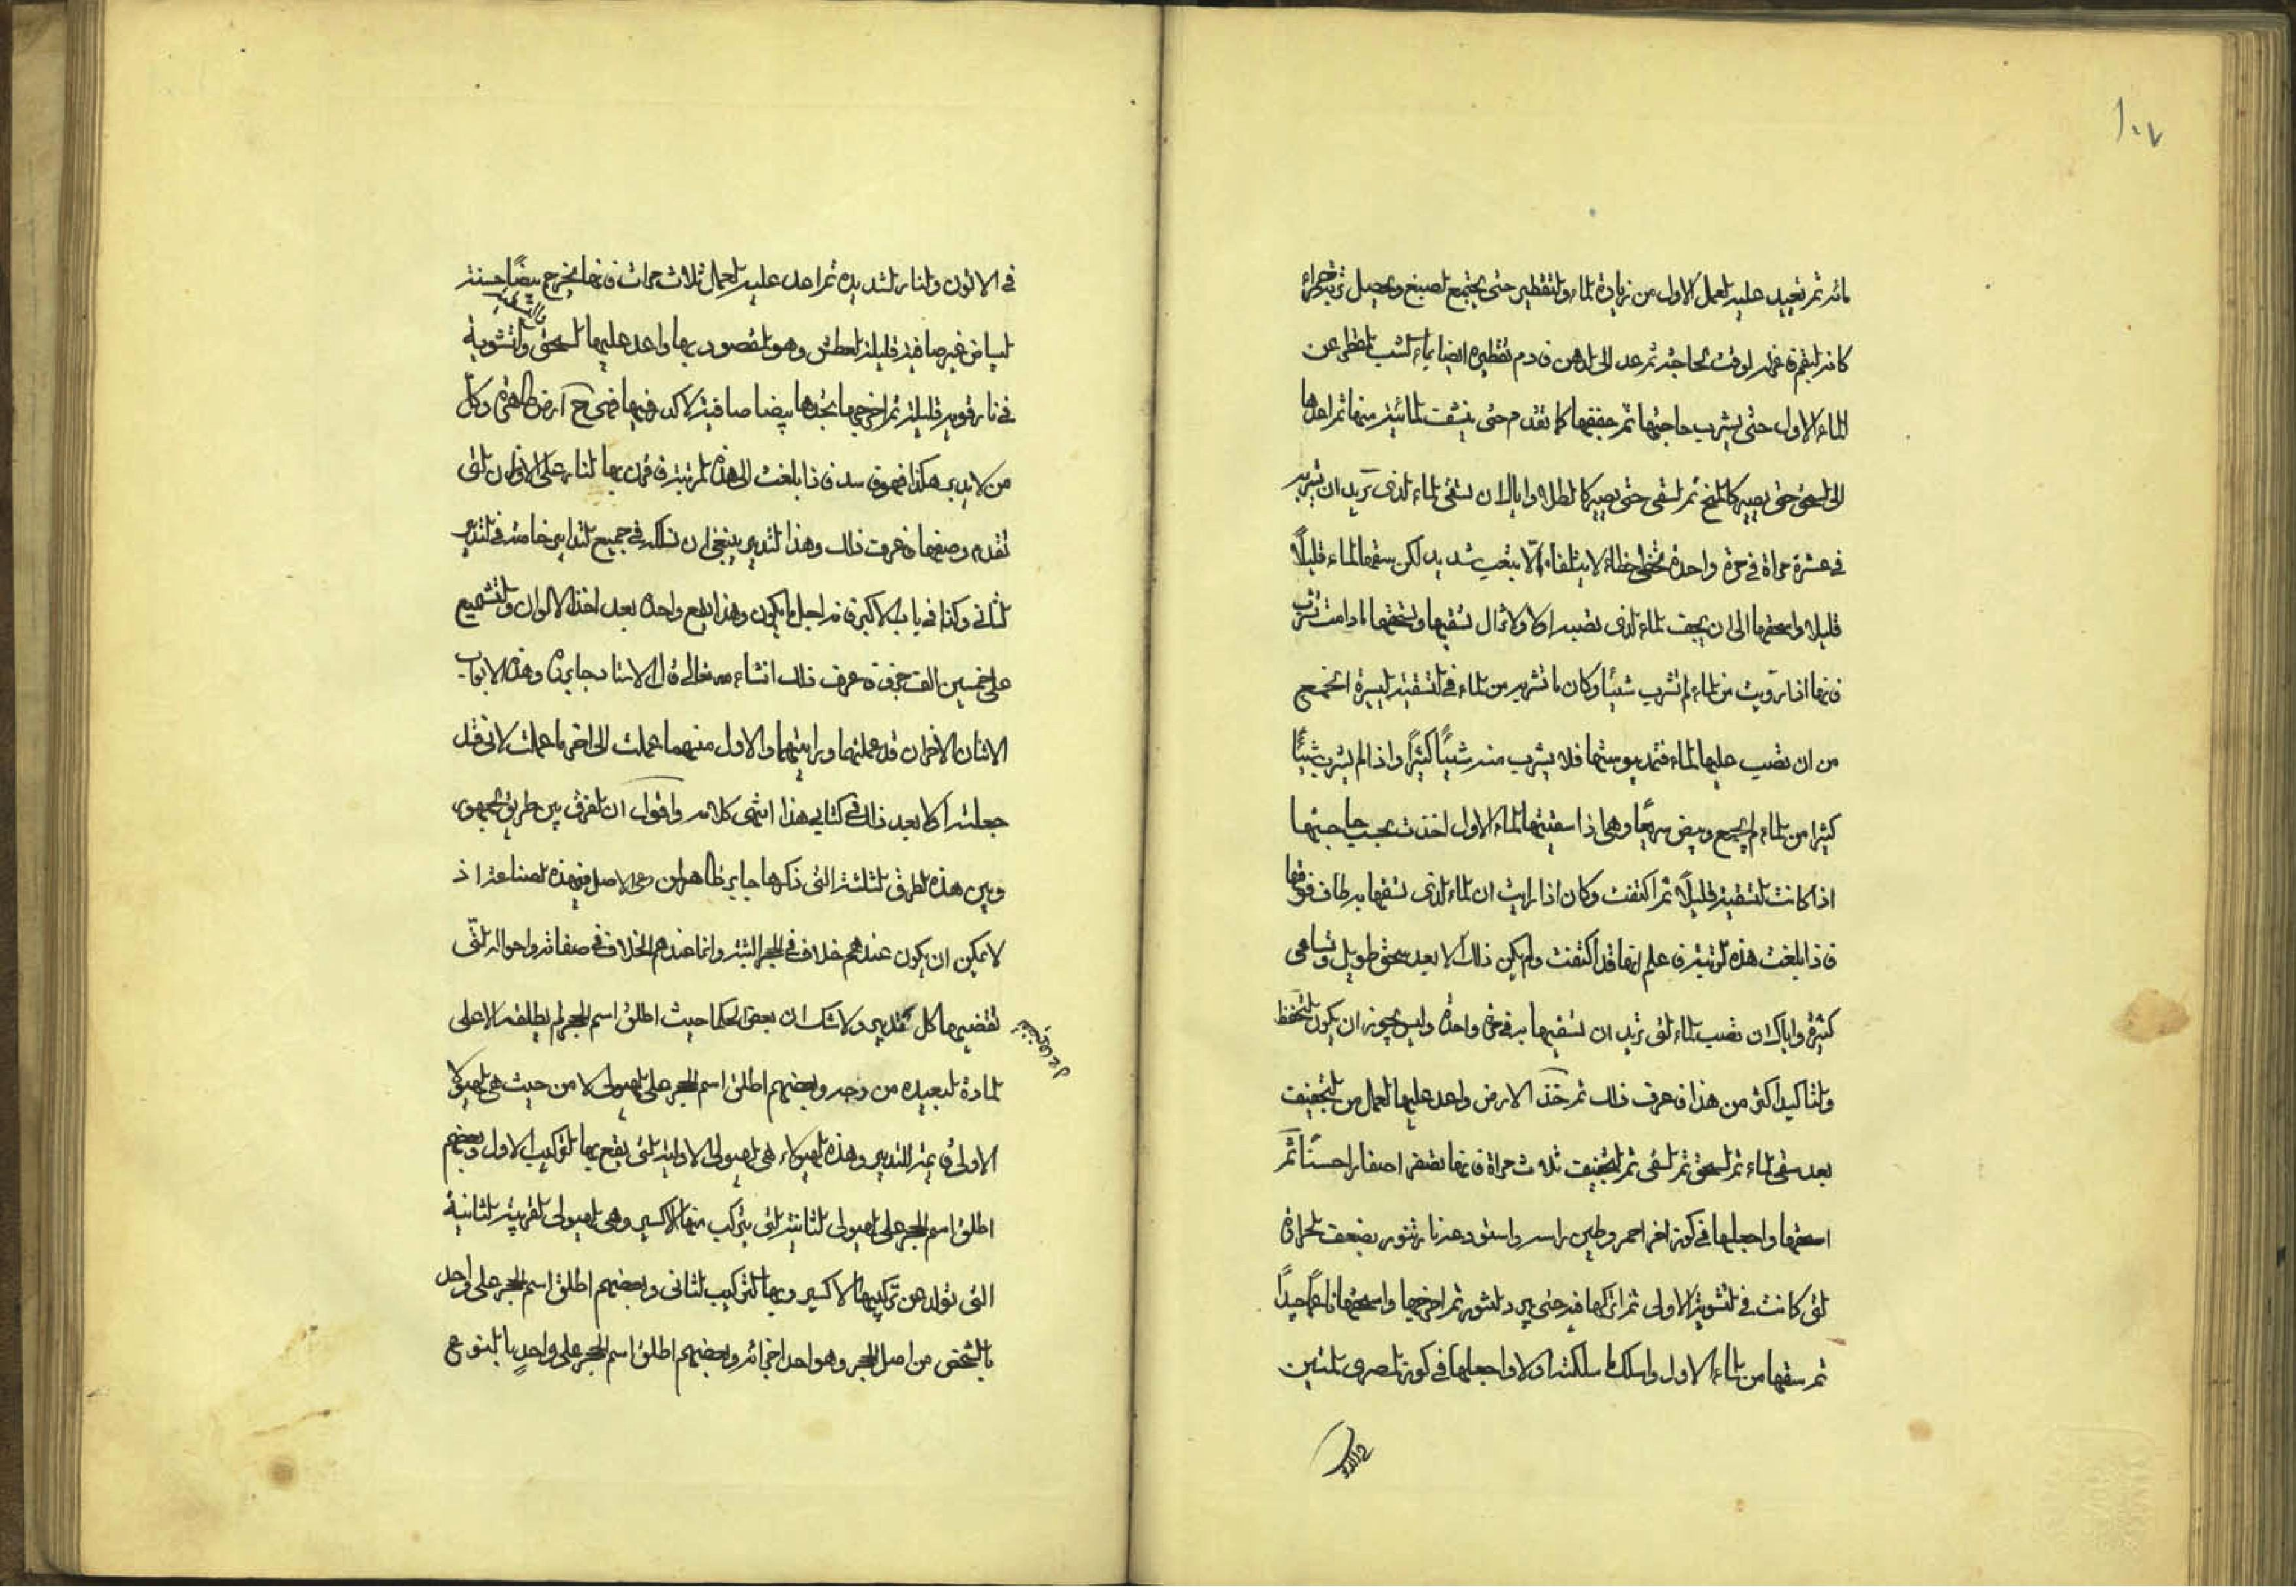 ١٠٧
مائه ثم تعيد عليه العمل الاول من زيادة الماء والتقطير حتى يجتمع الصبغ ويحصل تربته حمراء
كانه البقم فاعزله لوقت الحاجة ثم عد الى الدهن فادم تقطيره ايضا بماء الشب المقطر عن
الماء الاول حتى يشرب حاجتها ثم جففها كما تقدم حتى ينشف المائية منها ثم اعدها
الى السحق حتى يصير كالمخ ثم السقى حتى يصير كالطلاء واياك ان تسقى الماء الذى تريد ان تشربه
فى عشرة مراة فى مرة واحدة فتخطئ خطاء لا يتلافاه الا بتعب شديد لكن سقها الماء قليلاً
قليلا واسحقها الى ان يجف الماء الذى تصبه اولا ولا تزال تسقيها وتسحقها ما دامت تشرب
فانها اذا رويت من الماء لم تشرب شيئا وكان ما تشربه من الماء فى التسقية اليسيرة انجع
من ان تصب عليها الماء فتمد يبوستها فلا يشرب منه شيئاً كثيراً واذا لم يشرب شيئاً
كثيرا من الماء لم يجمع وبيض سريعا وهى اذا سقيتها الماء الاول اخذت بحسب حاجتها
اذا كانت التسقية قليلاً ثم اكتفت وكان اذا رايت ان الماء الذى تسقها به طاف فوقها
فاذا بلغت هذه المرتبة فاعلم انها قد اكتفت ولم يكن ذلك الا بعد سحق طويل وتساقى
كثيرة واياك ان تصب الماء التى تريد ان تسقيها به فى مرة واحدة وليس يجوز ان يكون التحفظ
والتاكيد اكثر من هذا فاعرف ذلك ثم خذ الارض واعد عليها العمل من التجفيف
بعد سقى الماء ثم السحق ثم السقى ثم التجفيف ثلاث مراة فانها تصفر اصفارا حسناً ثم
اسحقها واجعلها فى كوز اخر احمر وطين راسه واستودعه نار تنور بضعف الحرارة
التى كانت فى التشوية الاولى ثم اتركها فيه حتى يبرد التنور ثم اخرجها واسحقها ناعما جيداً
ثم سقها من الماء الاول واسلك ما سلكته اولا واجعلها فى كوز المصرى المتين
فى الاتون والنار الشديده ثم اعد عليه العمل ثلاث مرات فانها تخرج بيضاً حسنة
البياض غير صافية قليلة العطش وهو المقصود بها واعد عليها السحق والتشوية
فى نار قوية قليلة ثم اخرجها تجدها بيضا صافية لا كدر فيها فهى ح ارض طاهرة وكل
من لا يدبر هكذا فهو فاسد فاذا بلغت الى هذه المرتبة فاقمن بها النار على الاوزان التى
تقدم وصفها فاعرف ذلك وهذا التدبير ينبغى ان تسلكه فى جميع التدابير خاصة فى التدبير
الثانى وكذا فى باب الاكبر فانه اجل ما يكون وهذا يقع واحدة بعد اخذ الالوان والتشميع
على خمسين الف جزء فاعرف ذلك انشاء الله تعالى قال الاستاد جابر وهذه الابواب
الاثنان الاخران قد عملتها ورايتهما والاول منهما عملت الى اخر ما عملت لانى قد
جعلته اكلا بعد ذلك فى كتابى هذا انتهى كلامه واقول ان الفرق بين طريق الجمهور
وبين هذه الطرق الثلثة التى ذكرها جابر ظاهر من الاصل فى هذه الصناعة اذ
لا يمكن ان يكون عندهم خلاف فى الحجر البتة وانما عندهم الخلاف فى صفاته واحواله التى
تقضيها كل تدبير ولا شك ان بعض الحكما حيث اطلق اسم الحجر لم يطلقه الا على
المادة البعيده من وجه وبعضهم اطلق اسم الحجر على الهيولى لا من حيث هى الهيولا
الاولى فان تميز التدبير وهذه الهيولاء هى الهيولى الاولية التى يقع بها التركيب الاول وبعضهم
اطلق اسم الحجر على الهيولى الثانية التى يتركب منها الاكسير وهى الهيولى القريبة الثانية
التى تولد عن تركيبها الاكسير وبها التركيب الثانى وبعضهم اطلق اسم الحجر على واحد
بالشخص من اصل الحجر وهو احد اجزائه وبعضهم اطلق اسم الحجر على واحدٍ بالنوع